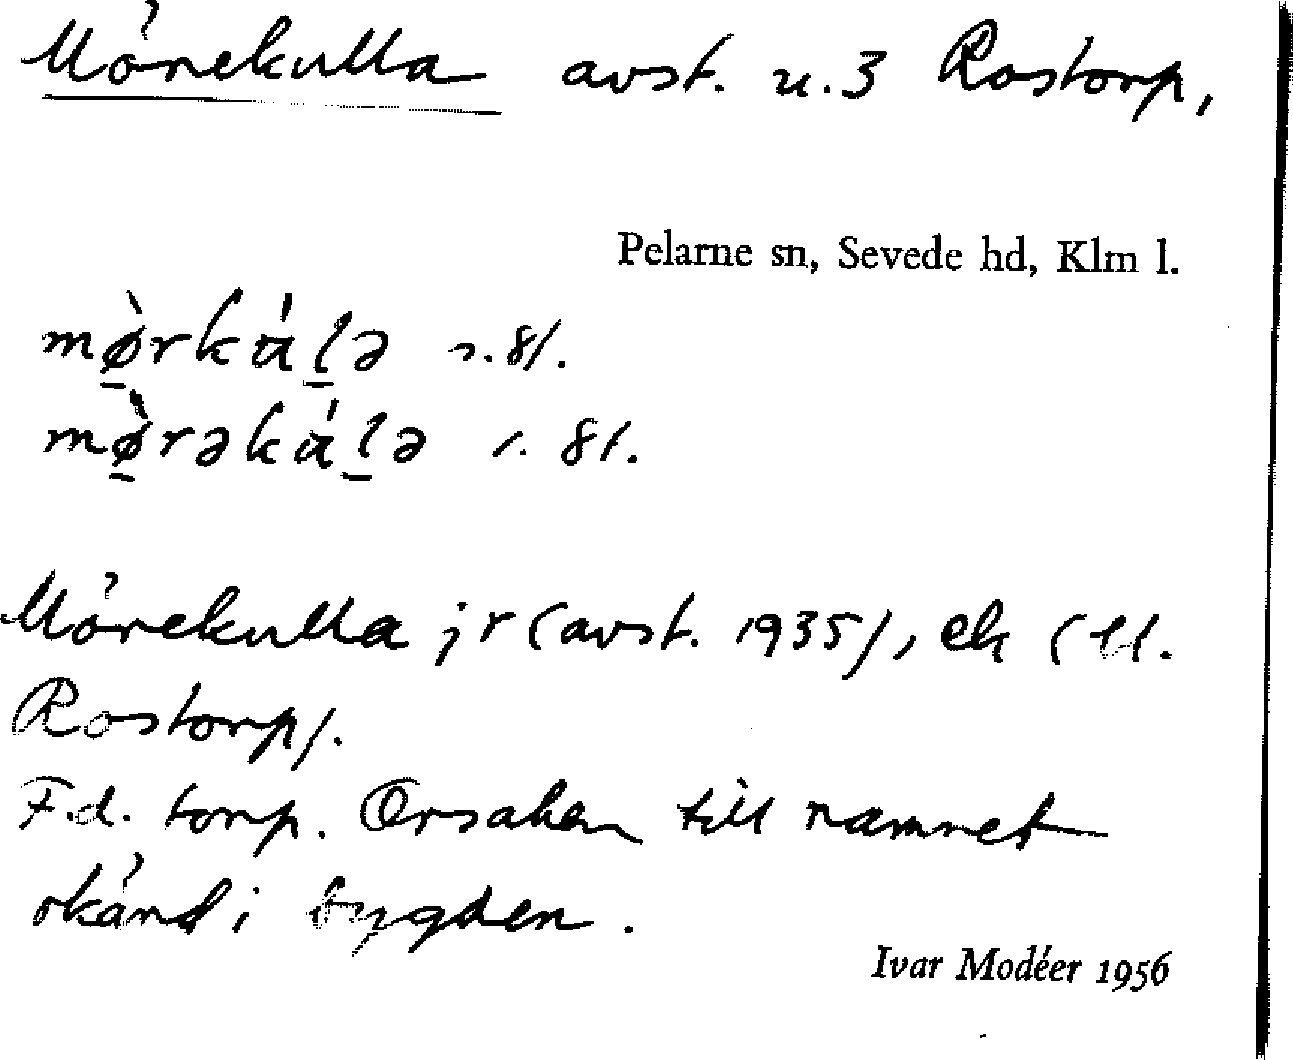 Mörekulla avst. u. 3 Rostorp,
Pelarne sn, Sevede hd, Klm l.
mø̠̀rkά̠l̠ə s. 81.
mø̠̀rəkάl̠ə s. 81.
Mörekulla jr (avst. 1935), ek (tl.
Rostorp).
F.d. torp. Orsaken till namnet
okänd i bygden.
Ivar Modéer 1956